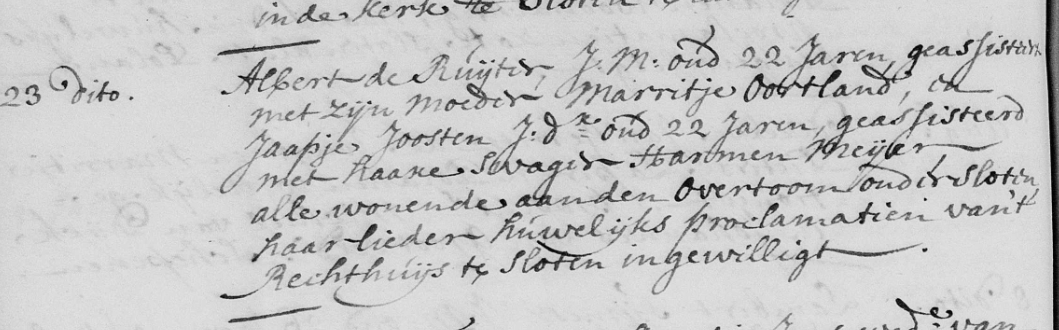 in de kerk te Sloten
23 dito. Albert de Ruijter, J. M: oud 22 Jaren, geassisteert
met zijn moeder Marritje Oortland, en
Jaapje Joosten J: d.r oud 22 Jaren, geassisteerd
met haare Swager Harmen Meijer,
alle wonende aan den Overtoom onder Sloten,
haar lieder huwelijks proclamatien van't
Rechthuijs te Sloten ingewilligt.
van